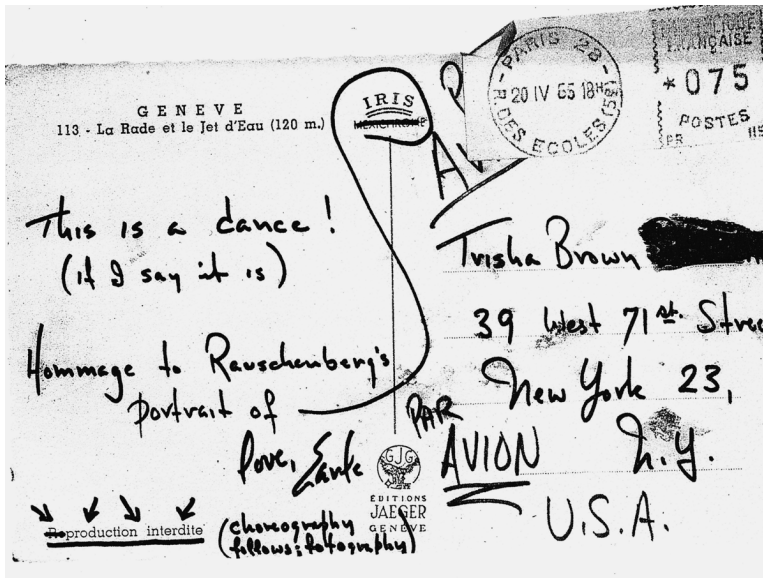 GENEVE
113 - La Rade et le Jet d'Eau (120 m.)
IRIS
MEXICHROME
PARIS 28
20 IV 65 18H
R. DES ECOLES (5e)
FRANÇAISE
*075
POSTES
PR
This is a dance!
(if I say it is)
Hommage to Rauschenberg's
portrait of
Love, Earle
(choreography
follows:fotography)
Reproduction interdite
GJG
EDITIONS
JAEGER
GENÈVE
Trisha Brown
39 West 71st. Stree
New York 23,
N.Y.
U.S.A.
PAR
AVION